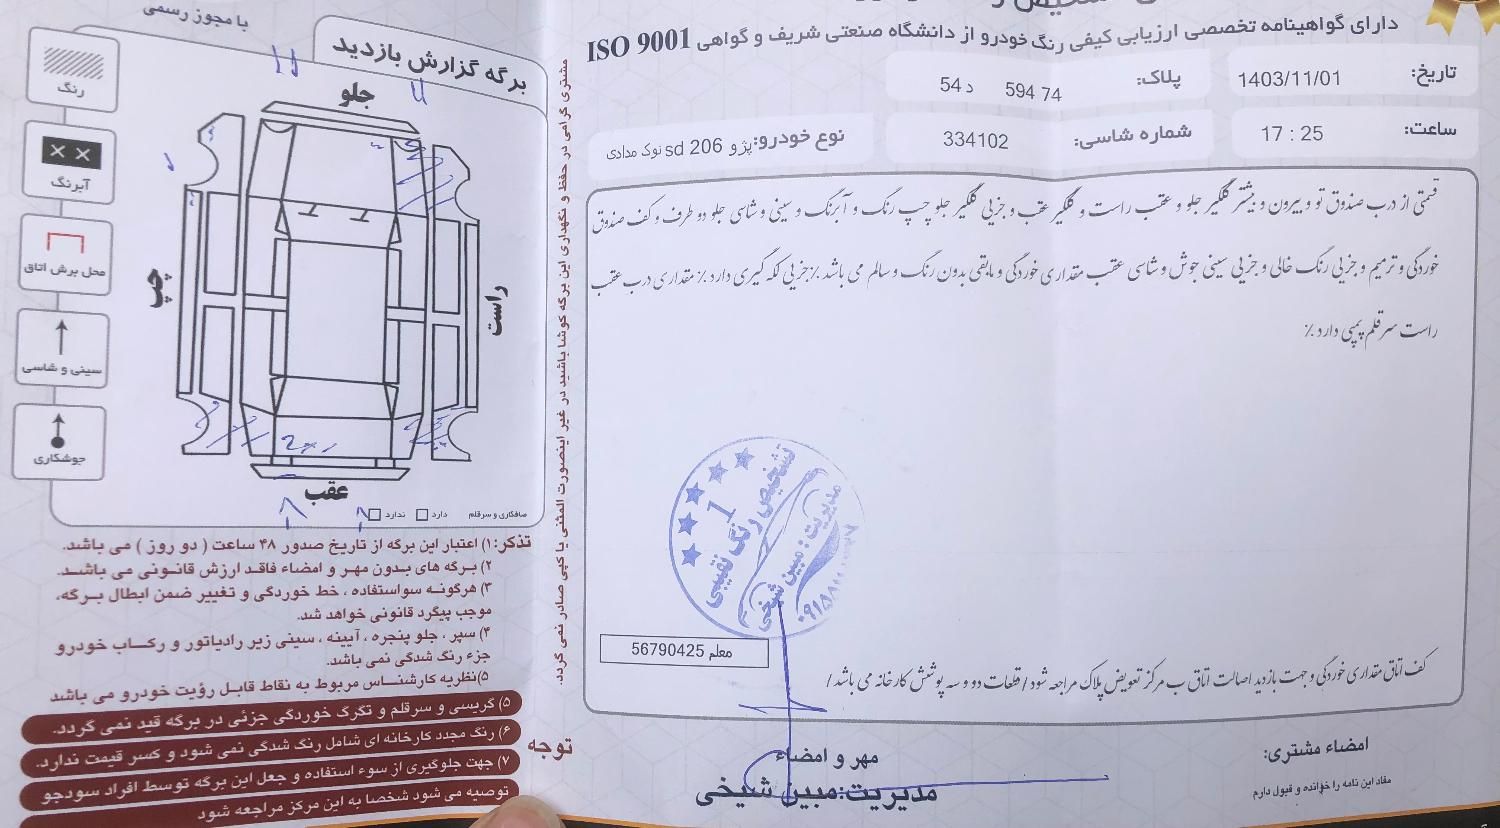 با مجوز رسمی
برگه گزارش بازدید
رنگ
آبرنگ
محل برش اتاق
سینی و شاسی
جوشکاری
جلو
چپ
راست
عقب
صافکاری و سرقلم دارد ندارد
تذکر: ۱) اعتبار این برگه از تاریخ صدور ۴۸ ساعت ( دو روز ) می باشد.
۲) برگه های بدون مهر و امضاء فاقد ارزش قانونی می باشد.
۳) هرگونه سواستفاده ، خط خوردگی و تغییر ضمن ابطال برگه،
موجب پیگرد قانونی خواهد شد.
۴) سپر ، جلو پنجره ، آیینه ، سینی زیر رادیاتور و رکاب خودرو
جزء رنگ شدگی نمی باشد.
۵) نظریه کارشناس مربوط به نقاط قابل رؤیت خودرو می باشد
۵) گریسی و سرقلم و تگرگ خوردگی جزئی در برگه قید نمی گردد.
۶) رنگ مجدد کارخانه ای شامل رنگ شدگی نمی شود و کسر قیمت ندارد.
۷) جهت جلوگیری از سوء استفاده و جعل این برگه توسط افراد سودجو
توصیه می شود شخصا به این مرکز مراجعه شود
توجه
مشتری گرامی در حفظ و نگهداری این برگه کوشا باشید در غیر اینصورت المثنی یا کپی صادر نمی گردد.
دارای گواهینامه تخصصی ارزیابی کیفی رنگ خودرو از دانشگاه صنعتی شریف و گواهی ISO 9001
تاریخ: 1403/11/01
پلاک: 74 594 د 54
ساعت: 17 : 25
شماره شاسی: 334102
نوع خودرو: پژو 206 sd نوک مدادی
قسمتی از درب صندوق تو و بیرون و بیشتر گلگیر جلو و عقب راست و گلگیر عقب و جزیی گلگیر جلو چپ رنگ و آبرنگ و سینی و شاسی جلو دو طرف و کف صندوق
خوردگی و ترمیم و جزیی رنگ خالی و جزیی سینی جوش و شاسی عقب مقداری خوردگی و مابقی بدون رنگ و سالم می باشد ٪ جزیی لکه گیری دارد ٪ مقداری درب عقب
راست سر قلم پمپی دارد ٪
تشخیص رنگ نقیبی
1
مدیریت: مبین شیخی
معلم 56790425
کف اتاق مقداری خوردگی و جهت بازدید اصالت اتاق ب مرکز تعویض پلاک مراجعه شود / قطعات دو و سه پوشش کارخانه می باشد /
مهر و امضاء
مدیریت: مبین شیخی
امضاء مشتری:
مفاد این نامه را خوانده و قبول دارم